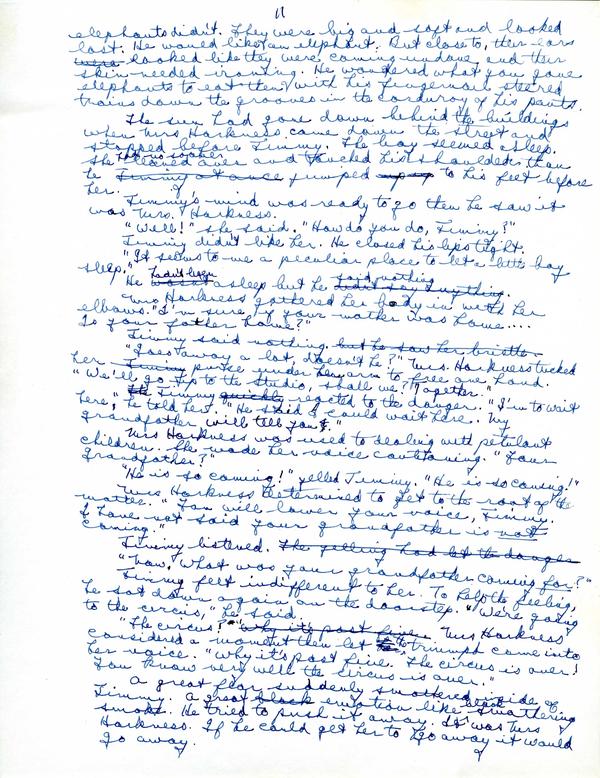 11
elephants didn't. They were big and soft and looked
lost. He would like an elephant. But close to, their ears
were looked like they were coming undone and their
skin needed ironing. He wondered what you gave
elephants to eat then, with his fingernail steered
trains down the grooves in the corduroy of his pants.
The sun had gone down behind the buildings
when Mrs Harkness came down the street and
stopped before Timmy. The boy seemed asleep.
She leaned over and touched his shoulder than
had no sooner
he Timmy at once jumped up to his feet before
her.
Timmy's mind was ready to go then he saw it
was Mrs. Harkness.
"Well!" she said. "How do you do, Timmy?"
Timmy didn't like her. He closed his lips tight.
"It seems to me a peculiar place to let a little boy
sleep."
hadn't been said nothing
He wasn't asleep but he didn't say anything.
Mrs Harkness gathered her body in with her
elbows. "I'm sure, if your mother was home....
Is your father home?"
Timmy said nothing but he saw her bristle.
"Goes away a lot, doesn't he?" Mrs. Harkness tucked
her Timmy purse under her arm to free one hand.
"We'll go up to the studio, shall we? Together."
The Timmy quickly reacted to the danger. "I'm to wait
here," he told her. "He said I could wait here. My
grandfather will tell you."
Mrs Harkness was used to dealing with petulant
children. She made her voice cautioning. "Your
grandfather?"
"He is so coming!" yelled Timmy. "He is so coming!"
Mrs Harkness determined to get to the root of the
matter. "You will lower your voice, Timmy.
I have not said your grandfather is not
coming."
Timmy listened. The yelling had let the danger
"Now, what was your grandfather coming for?"
Timmy felt indifferent to her. To help the feeling,
he sat down again on the doorstep. "We're going
to the circus," he said.
"The circus?" "Why it's past five. Mrs Harkness
considered a moment then let the triumph come into
her voice. "Why it's past five. The circus is over!
You know very well the circus is over."
A great fear suddenly smothered inside of
Timmy. A great black emotion like smothering
smoke. He tried to push it away. It was Mrs
Harkness. If he could get her to go away it would
go away.